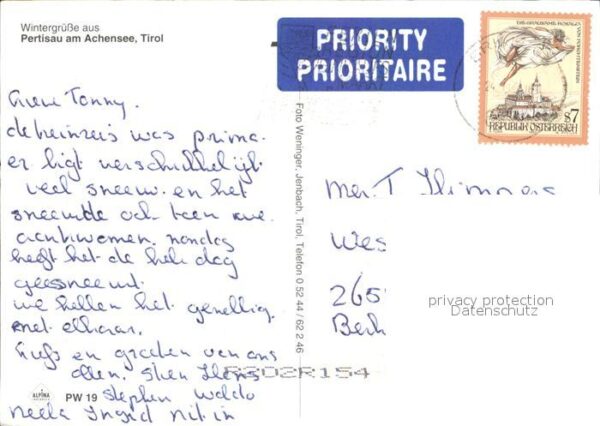 Wintergrüße aus
Pertisau am Achensee, Tirol
PRIORITY
PRIORITAIRE
VON FORCHTENSTEIN
S7
REPUBLIK ÖSTERREICH
Lieve Tonny.
de heenreis was prima.
er ligt verschrikkelijk
veel sneeuw en het
sneeuwde ook toen we
aankwamen. maandag
heeft het de hele dag
gesneeuwd.
we hebben het gezellig
met elkaar.
Liefs en groeten van ons
allen.
Stephen
Ingrid
Foto Weninger, Jenbach, Tirol, Telefon 0 52 44 / 62 2 46
Mevr T
Wes
265
Berk
privacy protection
Datenschutz
R302R154
ALPINA
PW 19